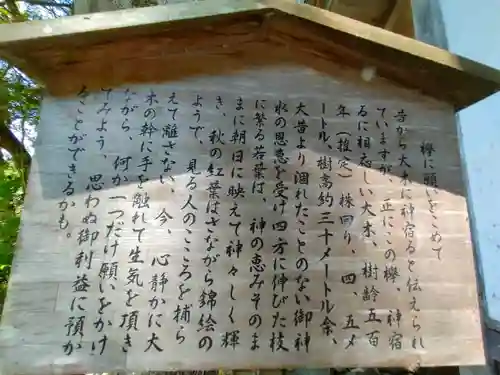 欅に願いをこめて
昔から大木に神宿ると伝えられ
ていますが、正にこの欅、神宿
るに相応しい大木、樹齢五百
年（推定）株回り、四・五メ
ートル、樹高約三十メートル余、
大昔より涸れたことのない御神
水の恩恵を受け四方に伸びた枝
に繁る若葉は、神の恵みそのま
まに朝日に映えて神々しく輝
き、秋の紅葉はさながら錦絵の
ようで、見る人のこころを捕ら
えて離さない、今、心静かに大
木の幹に手を触れて生気を頂き
ながら、何か一つだけ願いをかけ
てみよう、思わぬ御利益に預か
ることができるかも。